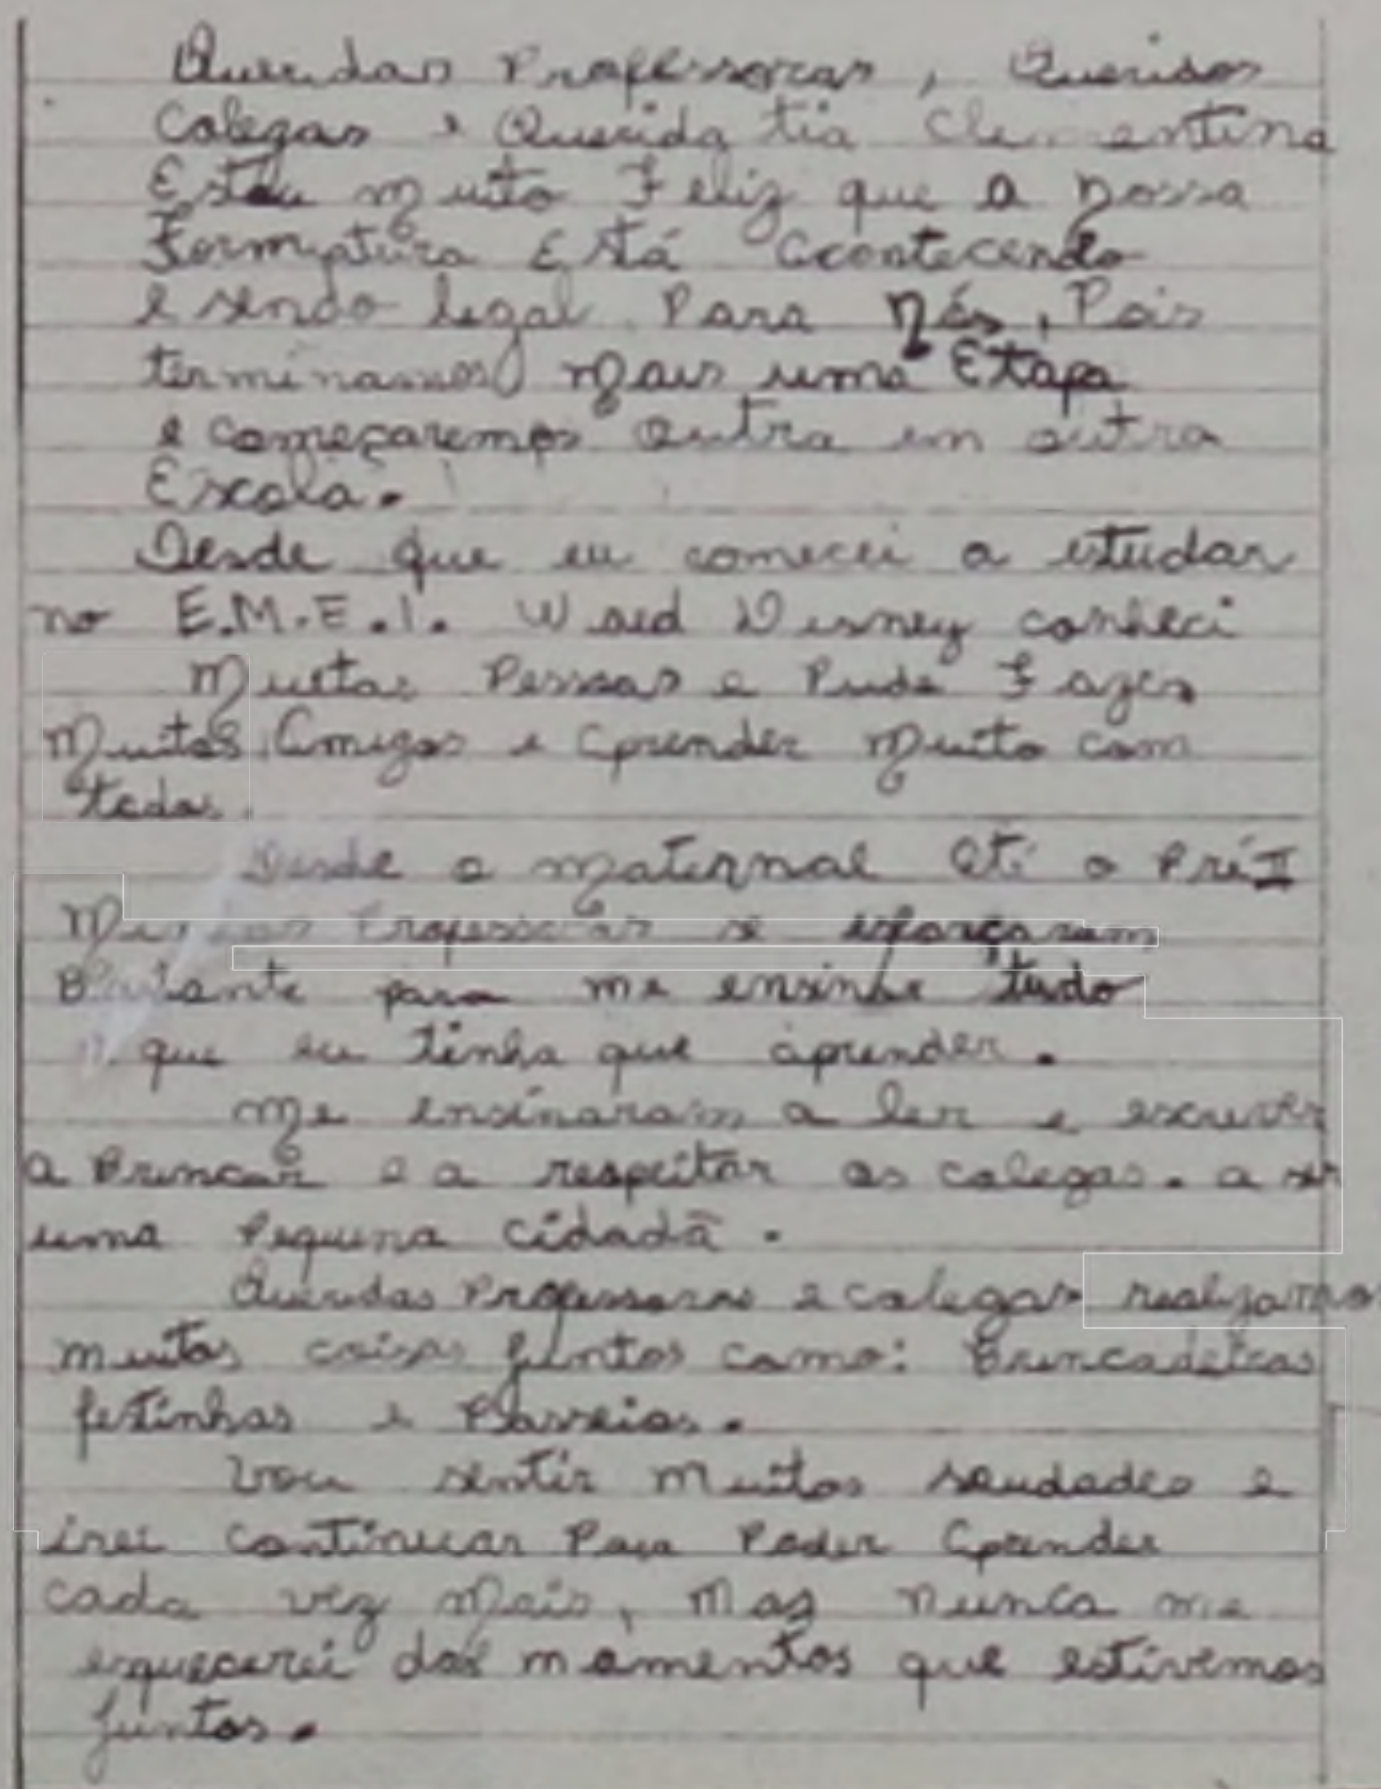 Queridas Professoras, Queridos
Colegas e Querida tia Clementina
Estou muito Feliz que a nossa
Formatura Está Acontecendo
e sendo legal Para nós, Pois
terminamos mais uma Etapa
e começaremos outra em outra
Escola.
Desde que eu comecei a estudar
no E.M.E.I. Waud Disney conheci
Muitas Pessoas e Pude Fazer
Muitos Amigos e Aprender muito com
todos.
Desde o maternal até o Pré II
Minhas Professoras se esforçaram
Bastante para me ensinar tudo
o que eu tinha que aprender.
Me ensinaram a ler e escrever
a Brincar e a respeitar os colegas. a ser
uma Pequena cidadã.
Queridas Professoras e colegas realizamos
muitas coisas juntos como: Brincadeiras
festinhas e Passeios.
Vou sentir muitas saudades e
irei continuar Para Poder Aprender
cada vez mais, mas nunca me
esquecerei dos momentos que estivemos
juntos.